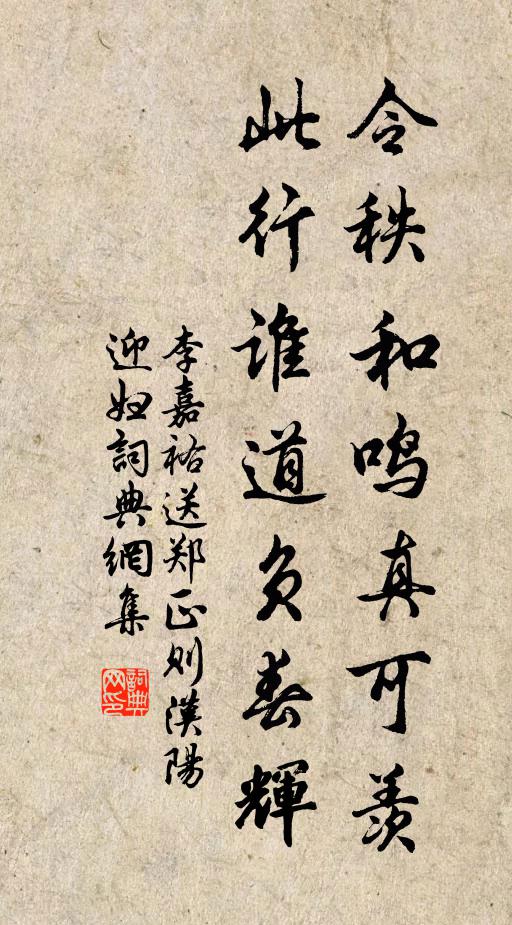 令秩和鸣真可羡
此行谁道负春輝
李嘉祐送郑正则漢陽
迎婦詞典網集
詞典网印